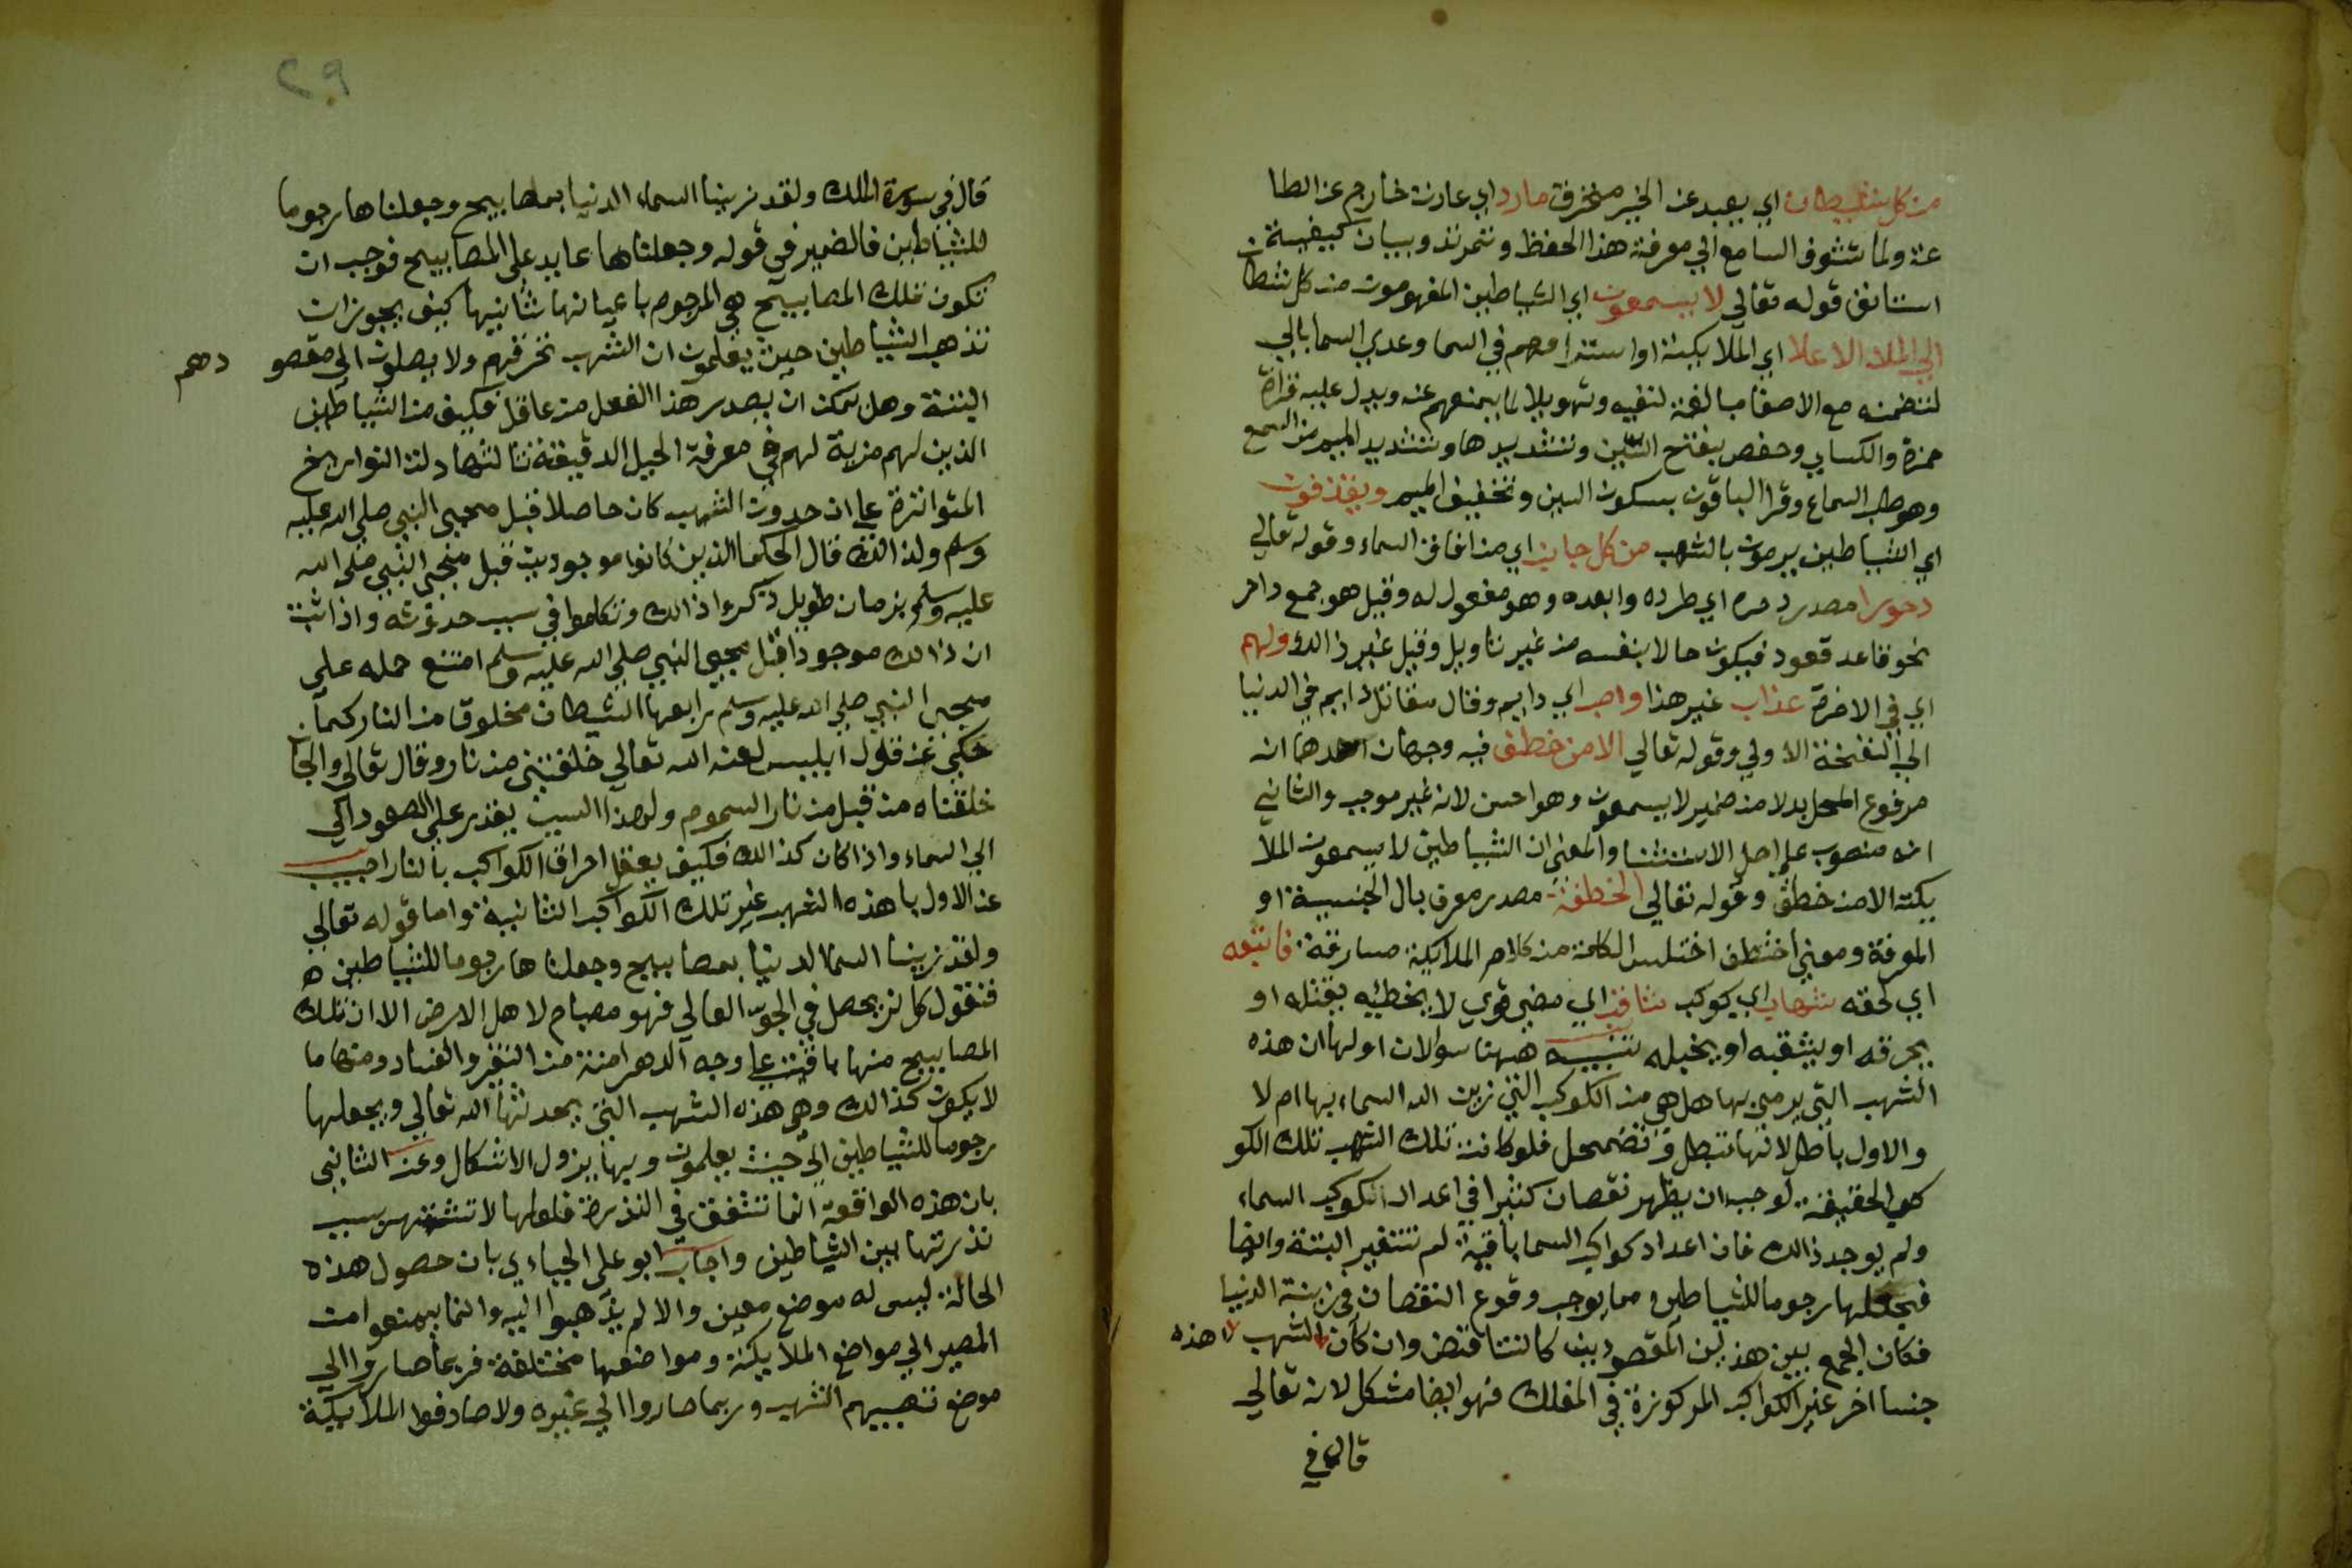 من كل شيطان اي بعيد عن الخير منحرف مارد اي عات خارج عن الطا
عة ولما تشوف السامع الي معرفة هذا الحفظ وثمرته وبيان كيفيته
استانف قوله تعالي لا يسمعون اي الشياطين المفهومون من كل شيطان
الي الملا الاعلا اي الملايكة او اشرافهم في السما وعدي السما بالي
لتضمنه مع الاصغا مبالغة لنفيه وتهويلا لما يمنعهم عنه ويدل عليه قراة
حمزة والكساي وحفص بفتح السين وتشديدها وتشديد الميم من التسمع
وهو طلب السماع وقرا الباقون بسكون السين وتخفيف الميم ويقذفون
اي الشياطين يرمون بالشهب من كل جانب اي من افاق السماء وقوله تعالي
دحورا مصدر دحره اي طرده وابعده وهو مفعول له وقيل هو جمع داحر
نحو قاعد قعود فيكون حالا بنفسه من غير تاويل وقيل غير ذالك ولهم
اي في الاخرة عذاب غير هذا واصب اي دايم وقال مقاتل دايم في الدنيا
الي النفخة الاولي وقوله تعالي الا من خطف فيه وجهان احدهما انه
مرفوع المحل بدلا من ضمير لا يسمعون وهو احسن لانه غير موجب والثاني
انه منصوب علي اصل الاستثنا والمعني ان الشياطين لا يسمعون الملا
يكة الا من خطف وقوله تعالي الخطفة مصدر معرف بال الجنسية او
المعرفة ومعني اختطف اختلس الكلمة من كلام الملايكة مسارقة فاتبعه
اي لحقه شهاب اي كوكب ثاقب اي مضي قوي لا يخطئه يقتله او
يحرقه او يثقبه او يخبله تنبيه ههنا سوالات اولها ان هذه
الشهب التي يرمي بها هل هي من الكواكب التي زين الله السماء بها ام لا
والاول باطل لانها تبطل وتضمحل فلو كانت تلك الشهب تلك الكو
كب الحقيقة لوجب ان يظهر نقصان كثيرا في اعداد الكوكب السماء
ولم يوجد ذالك فان اعداد كواكب السما باقية لم تتغير البتة وايضا
فجعلها رجوما للشياطين مما يوجب وقوع النقصان في زينة الدنيا
فكان الجمع بين هذين المقصودين كالتناقض وان كان الشهب هذه
جنسا اخر غير الكواكب المركوزة في الفلك فهو ايضا مشكل لانه تعالي
قال في
٢٩
قال في سورة الملك ولقد زينا السماء الدنيا بمصابيح وجعلناها رجوما
للشياطين فالضمير في قوله وجعلناها عايد علي المصابيح فوجب ان
تكون تلك المصابيح هي الرجوم باعيانها ثانيها كيف يجوز ان
تذهب الشياطين حيث يعلمون ان الشهب تحرقهم ولا يصلون الي مقصو
دهم
البتة وهل يمكن ان يصدر هذا الفعل من عاقل فكيف من الشياطين
الذين لهم مزية لهم في معرفة الحيل الدقيقة ثالثها دلت التواريخ
المتواترة علي ان حدوث الشهب كان حاصلا قبل مجيي النبي صلي الله عليه
وسلم ولذالك قال الحكما الذين كانوا موجودين قبل مجيي النبي صلي الله
عليه وسلم بزمان طويل ذكروا ذالك وتكلموا في سبب حدوثه واذا ثبت
ان ذالك موجودا قبل مجيي النبي صلي الله عليه وسلم امتنع حمله علي
مجيي النبي صلي الله عليه وسلم رابعها الشيطان مخلوق من النار كما
حكي عن قول ابليس لعنه الله تعالي خلقتني من نار وقال تعالي والجان
خلقناه من قبل من نار السموم ولهذا السبب يقدر علي الصعود الي
الي السماء واذا كان كذالك فكيف يعقل احراق الكواكب بالنار اجيب
عن الاول با هذه الشهب غير تلك الكواكب الثانية واما قوله تعالي
ولقد زينا السما الدنيا بمصابيح وجعلناها رجوما للشياطين ه
فنقول كل نير يحصل في الجو العالي فهو مصباح لاهل الارض الا ان تلك
المصابيح منها باقية علي وجه الدهر امنة من التغير والفساد ومنها ما
لا يكون كذالك وهي هذه الشهب التي يحدثها الله تعالي ويجعلها
رجوما للشياطين الي حيث يعلمون وبها يزول الاشكال وعن الثاني
بان هذه الواقعة انما تتفق في الندرة فلعلها لا تشتهر بسبب
ندرتها بين الشياطين واجاب ابو علي الجباءي بان حصول هذه
الحالة ليس له موضع معين والا لم يذهبوا اليه وانما يمنعوا من
المصير الي مواضع الملايكة ومواضعها مختلفة فربما صاروا الي
موضع تصيبهم الشهب وربما صاروا الي غيره ولا صادفوا الملايكة